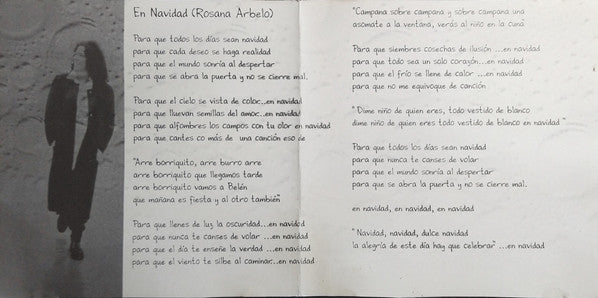 En Navidad (Rosana Arbelo)
Para que todos los días sean navidad
para que cada deseo se haga realidad
para que el mundo sonría al despertar
para que se abra la puerta y no se cierre mal.
Para que el cielo se vista de color...en navidad
para que lluevan semillas del amor...en navidad
para que alfombres los campos con tu olor en navidad
para que cantes co más de una canción eso de
"Arre borriquito, arre burro arre
arre borriquito que llegamos tarde
arre borriquito vamos a Belén
que mañana es fiesta y al otro también"
Para que llenes de luz la oscuridad...en navidad
para que nunca te canses de volar ...en navidad
para que el día te enseñe la verdad ...en navidad
para que el viento te silbe al caminar...en navidad
"Campana sobre campana y sobre campana una
asómate a la ventana, verás al niño en la cuna
Para que siembres cosechas de ilusión ...en navidad
para que todo sea un solo corazón...en navidad
para que el frío se llene de calor ...en navidad
para que no me equivoque de canción
"Dime niño de quien eres, todo vestido de blanco
dime niño de quien eres todo vestido de blanco en navidad"
Para que todos los días sean navidad
para que nunca te canses de volar
para que el mundo sonría al despertar
para que se abra la puerta y no se cierre mal.
en navidad, en navidad, en navidad
"Navidad, navidad, dulce navidad
la alegría de este día hay que celebrar" ...en navidad